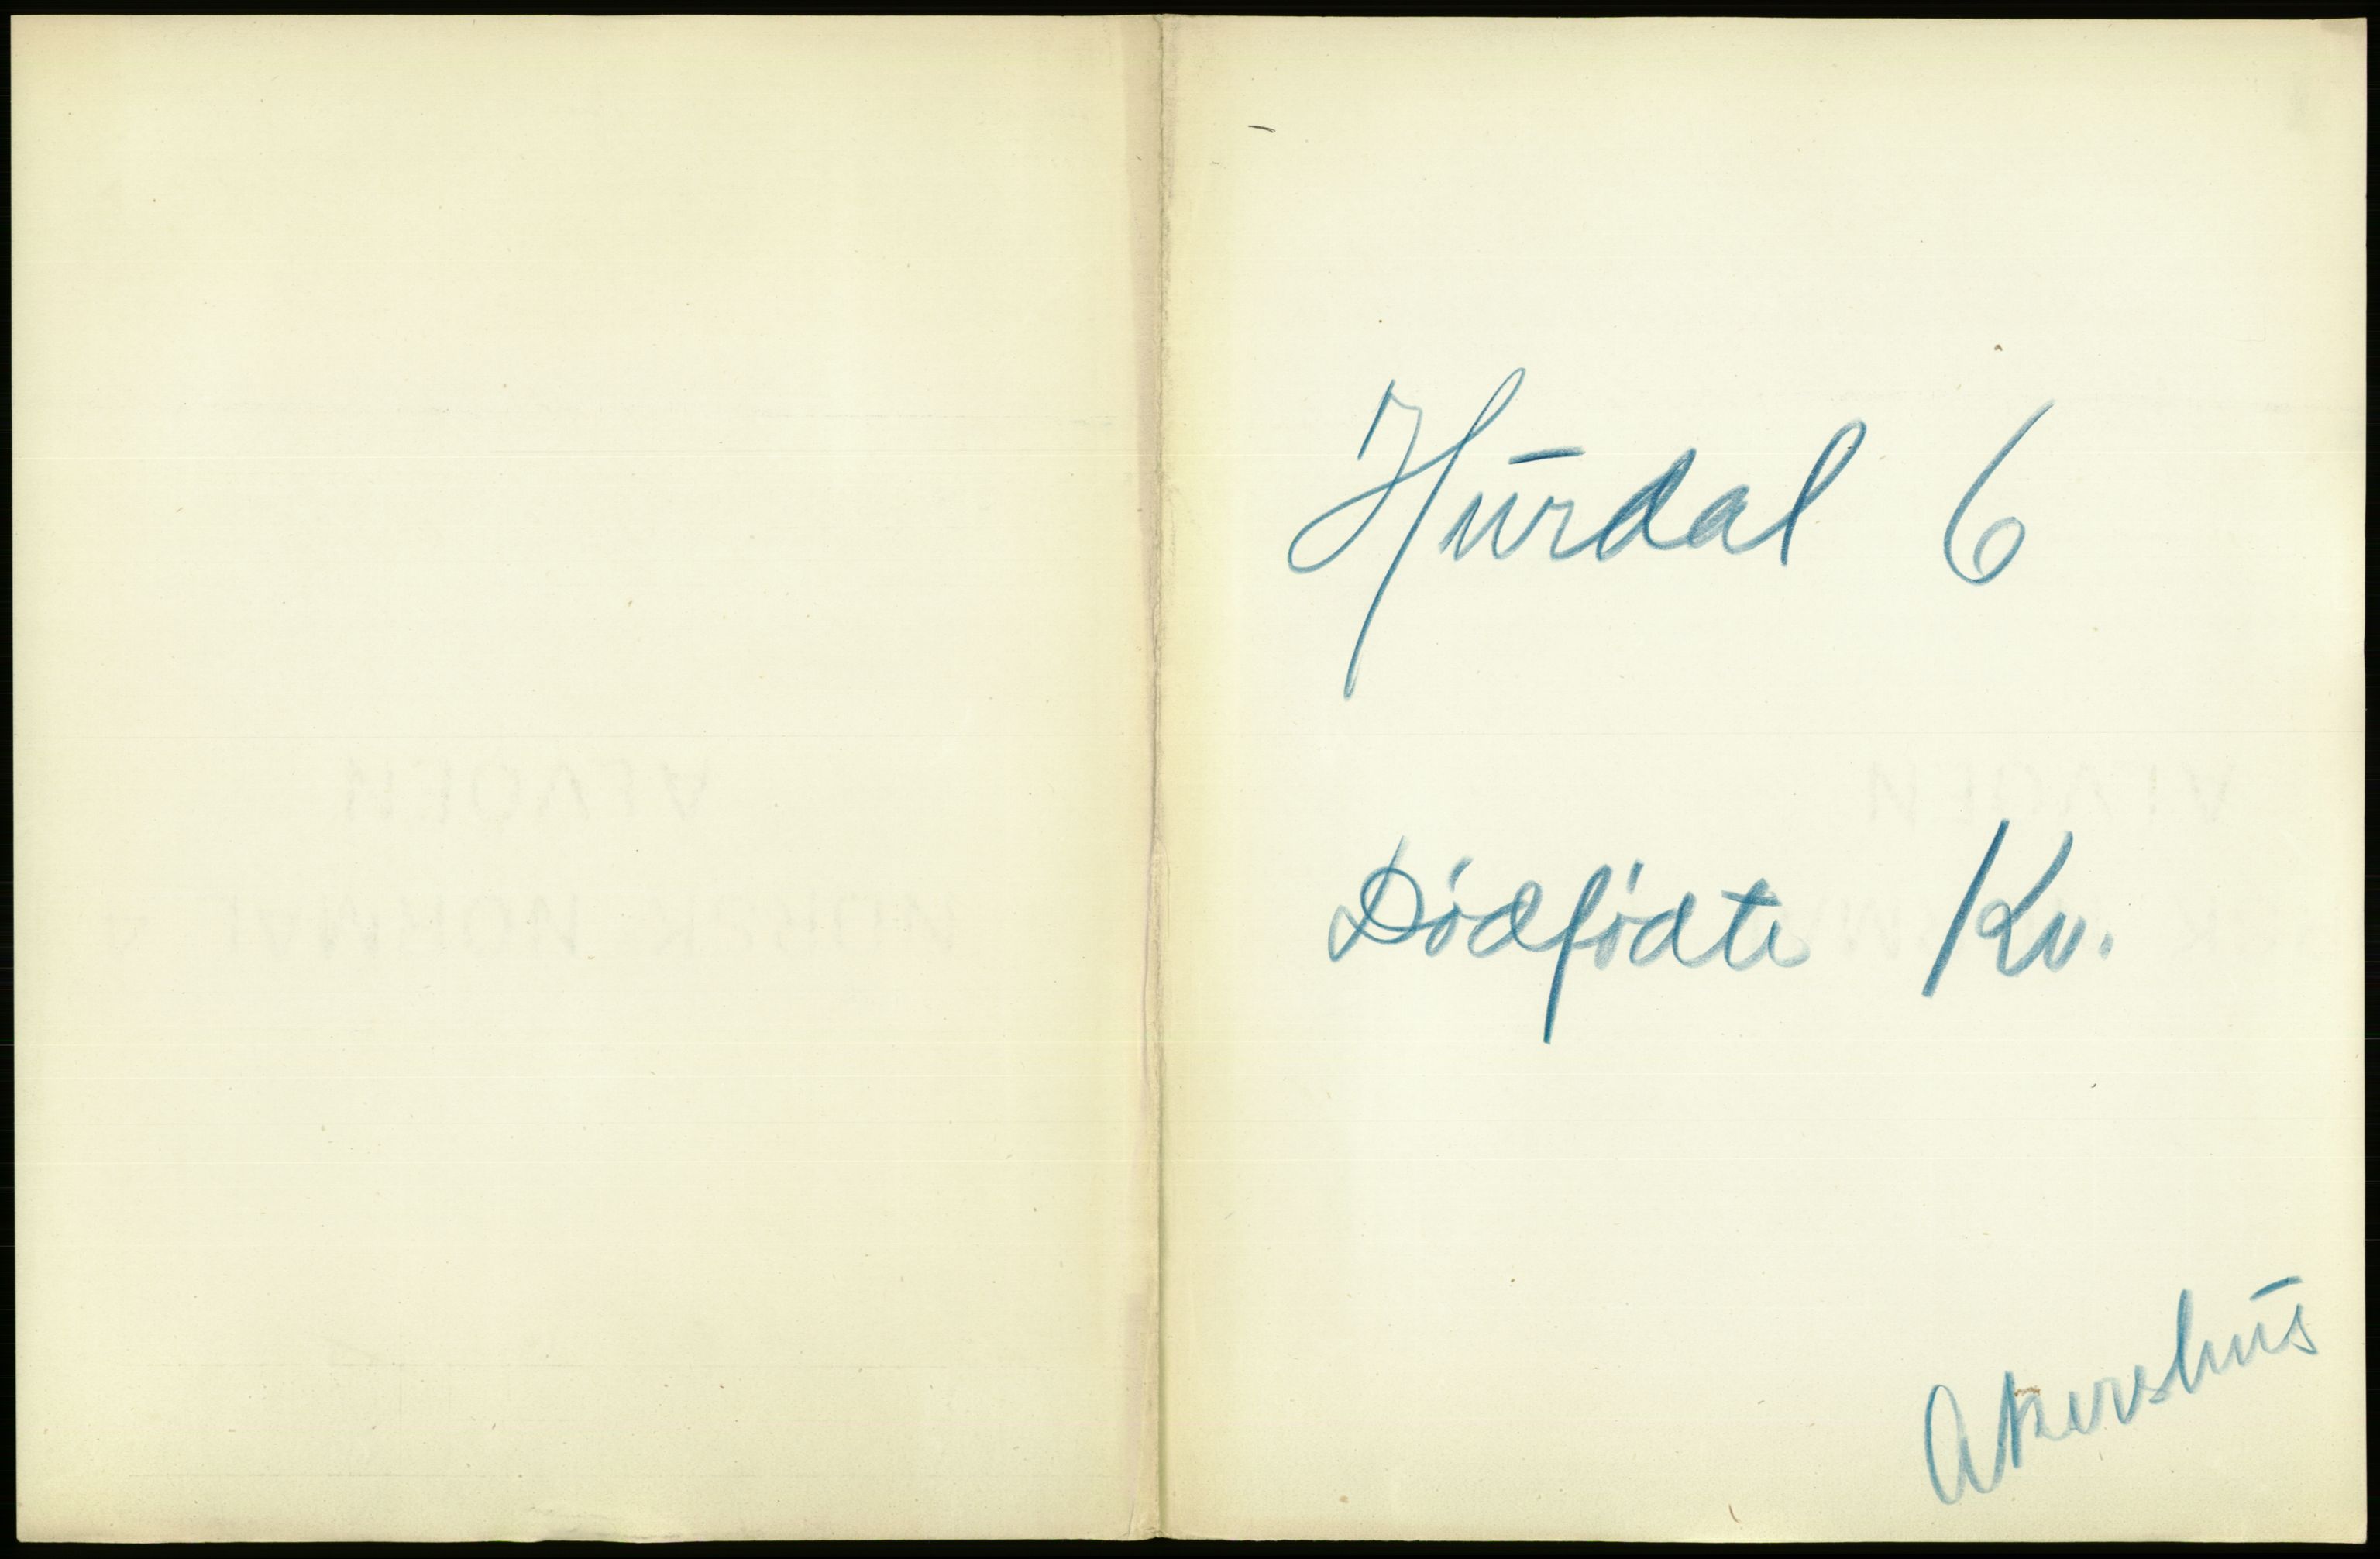 Hurdal 6
Dødfødte Kv.
Akershus